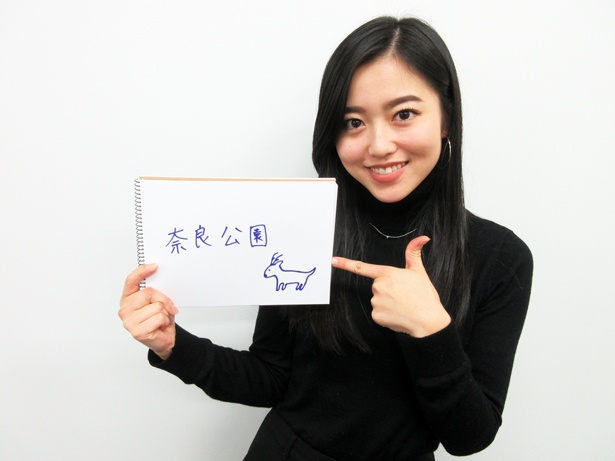 奈良公園